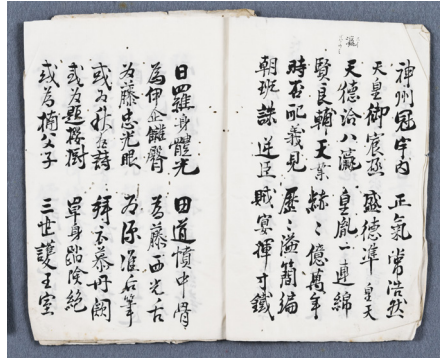 神州冠宇内 正氣常浩然
天皇御宸極 盛德準皇天
天德洽八瀛 皇胤一連綿
賢良輔天業 赫々億萬年
時否配義見 歷々溢簡編
朝班誅逆臣 賊宴揮寸鐵
日羅身體光 田道憤中骨
為伊企儺臀 為藤西光舌
為藤忠光眼 為源准后筆
或為秋笳詩 拜衣慕丹闕
或為題桜樹 單身踏險絶
或為楠父子 三世護王室